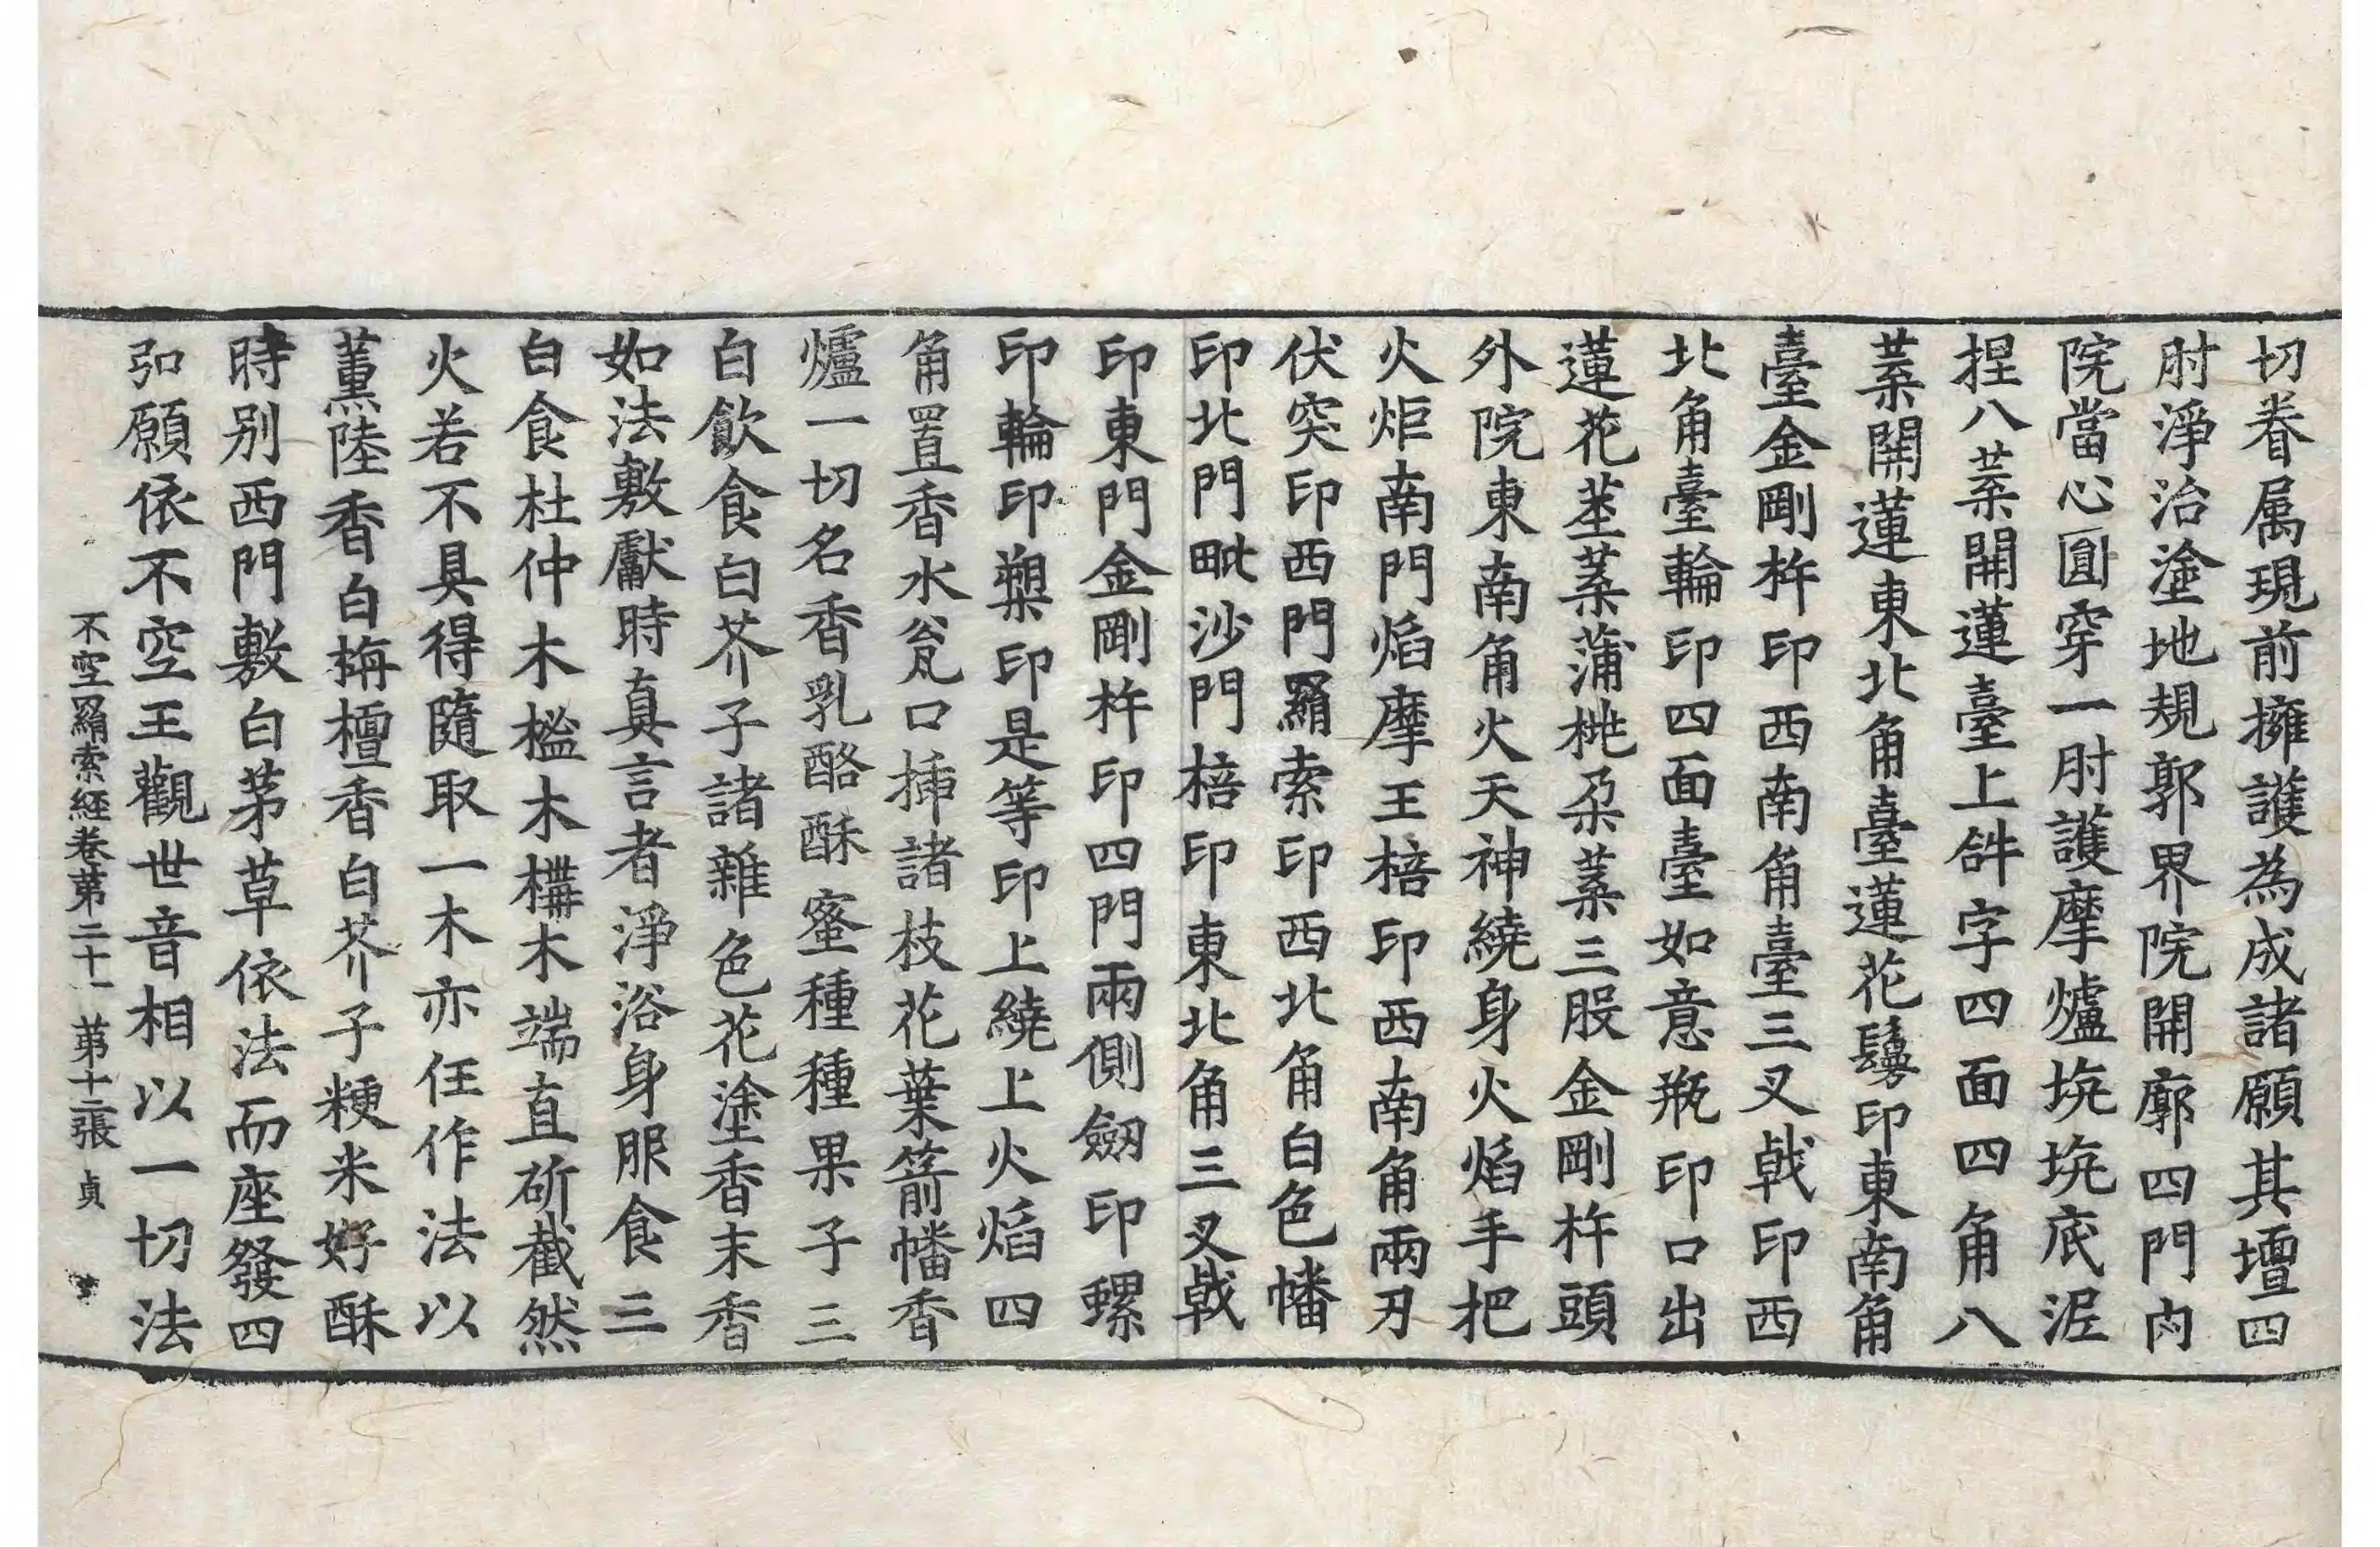 切眷属現前擁護為成諸願其壇四
肘淨治塗地規郭界院開廓四門內
院當心圓穿一肘護摩爐垸垸底泥
捏八葉開蓮臺上𤙖字四面四角八
葉開蓮東北角臺蓮花鬘印東南角
臺金剛杵印西南角臺三叉戟印西
北角臺輪印四面臺如意瓶印口出
蓮花莖葉蒲桃朶葉三股金剛杵頭
外院東南角火天神繞身火焰手把
火炬南門焰摩王棓印西南角兩刃
伏突印西門羂索印西北角白色幡
印北門毗沙門棓印東北角三叉戟
印東門金剛杵印四門兩側劒印螺
印輪印槊印是等印上繞上火焰四
角置香水瓮口插諸枝花葉箭幡香
爐一切名香乳酪酥蜜種種果子三
白飲食白芥子諸雜色花塗香末香
如法敷獻時真言者淨浴身服食三
白食杜仲木檻木構木端直斫截然
火若不具得隨取一木亦任作法以
薰陸香白栴檀香白芥子粳米好酥
時別西門敷白茅草依法而座發四
弘願依不空王觀世音相以一切法
不空羂索經卷苐二十一 苐十二張 貞